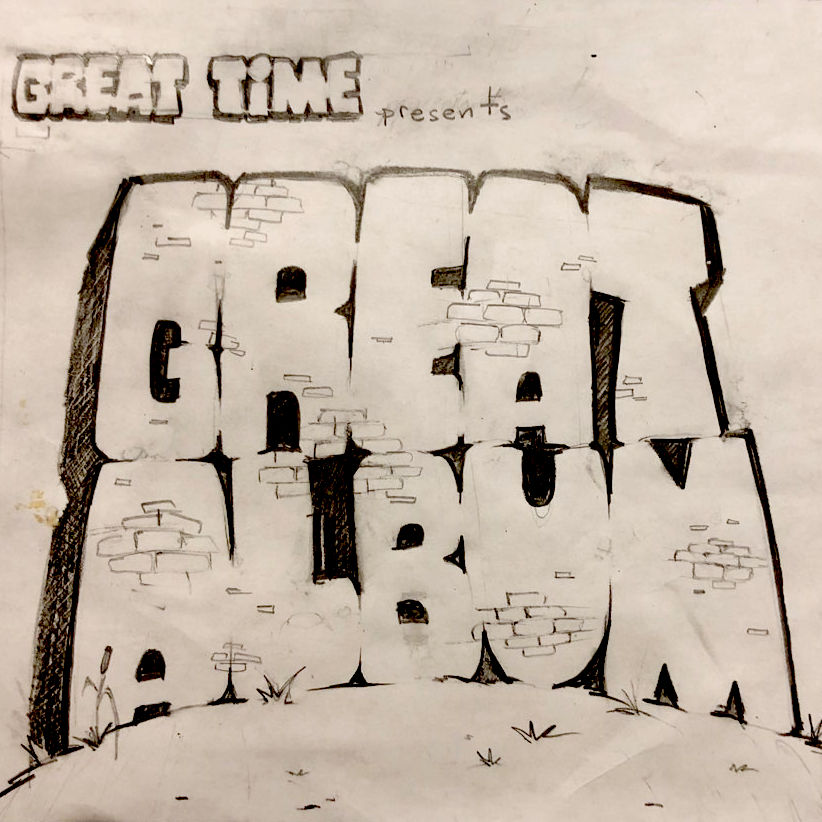 GREAT TiME presents
GREAT
ALBUM